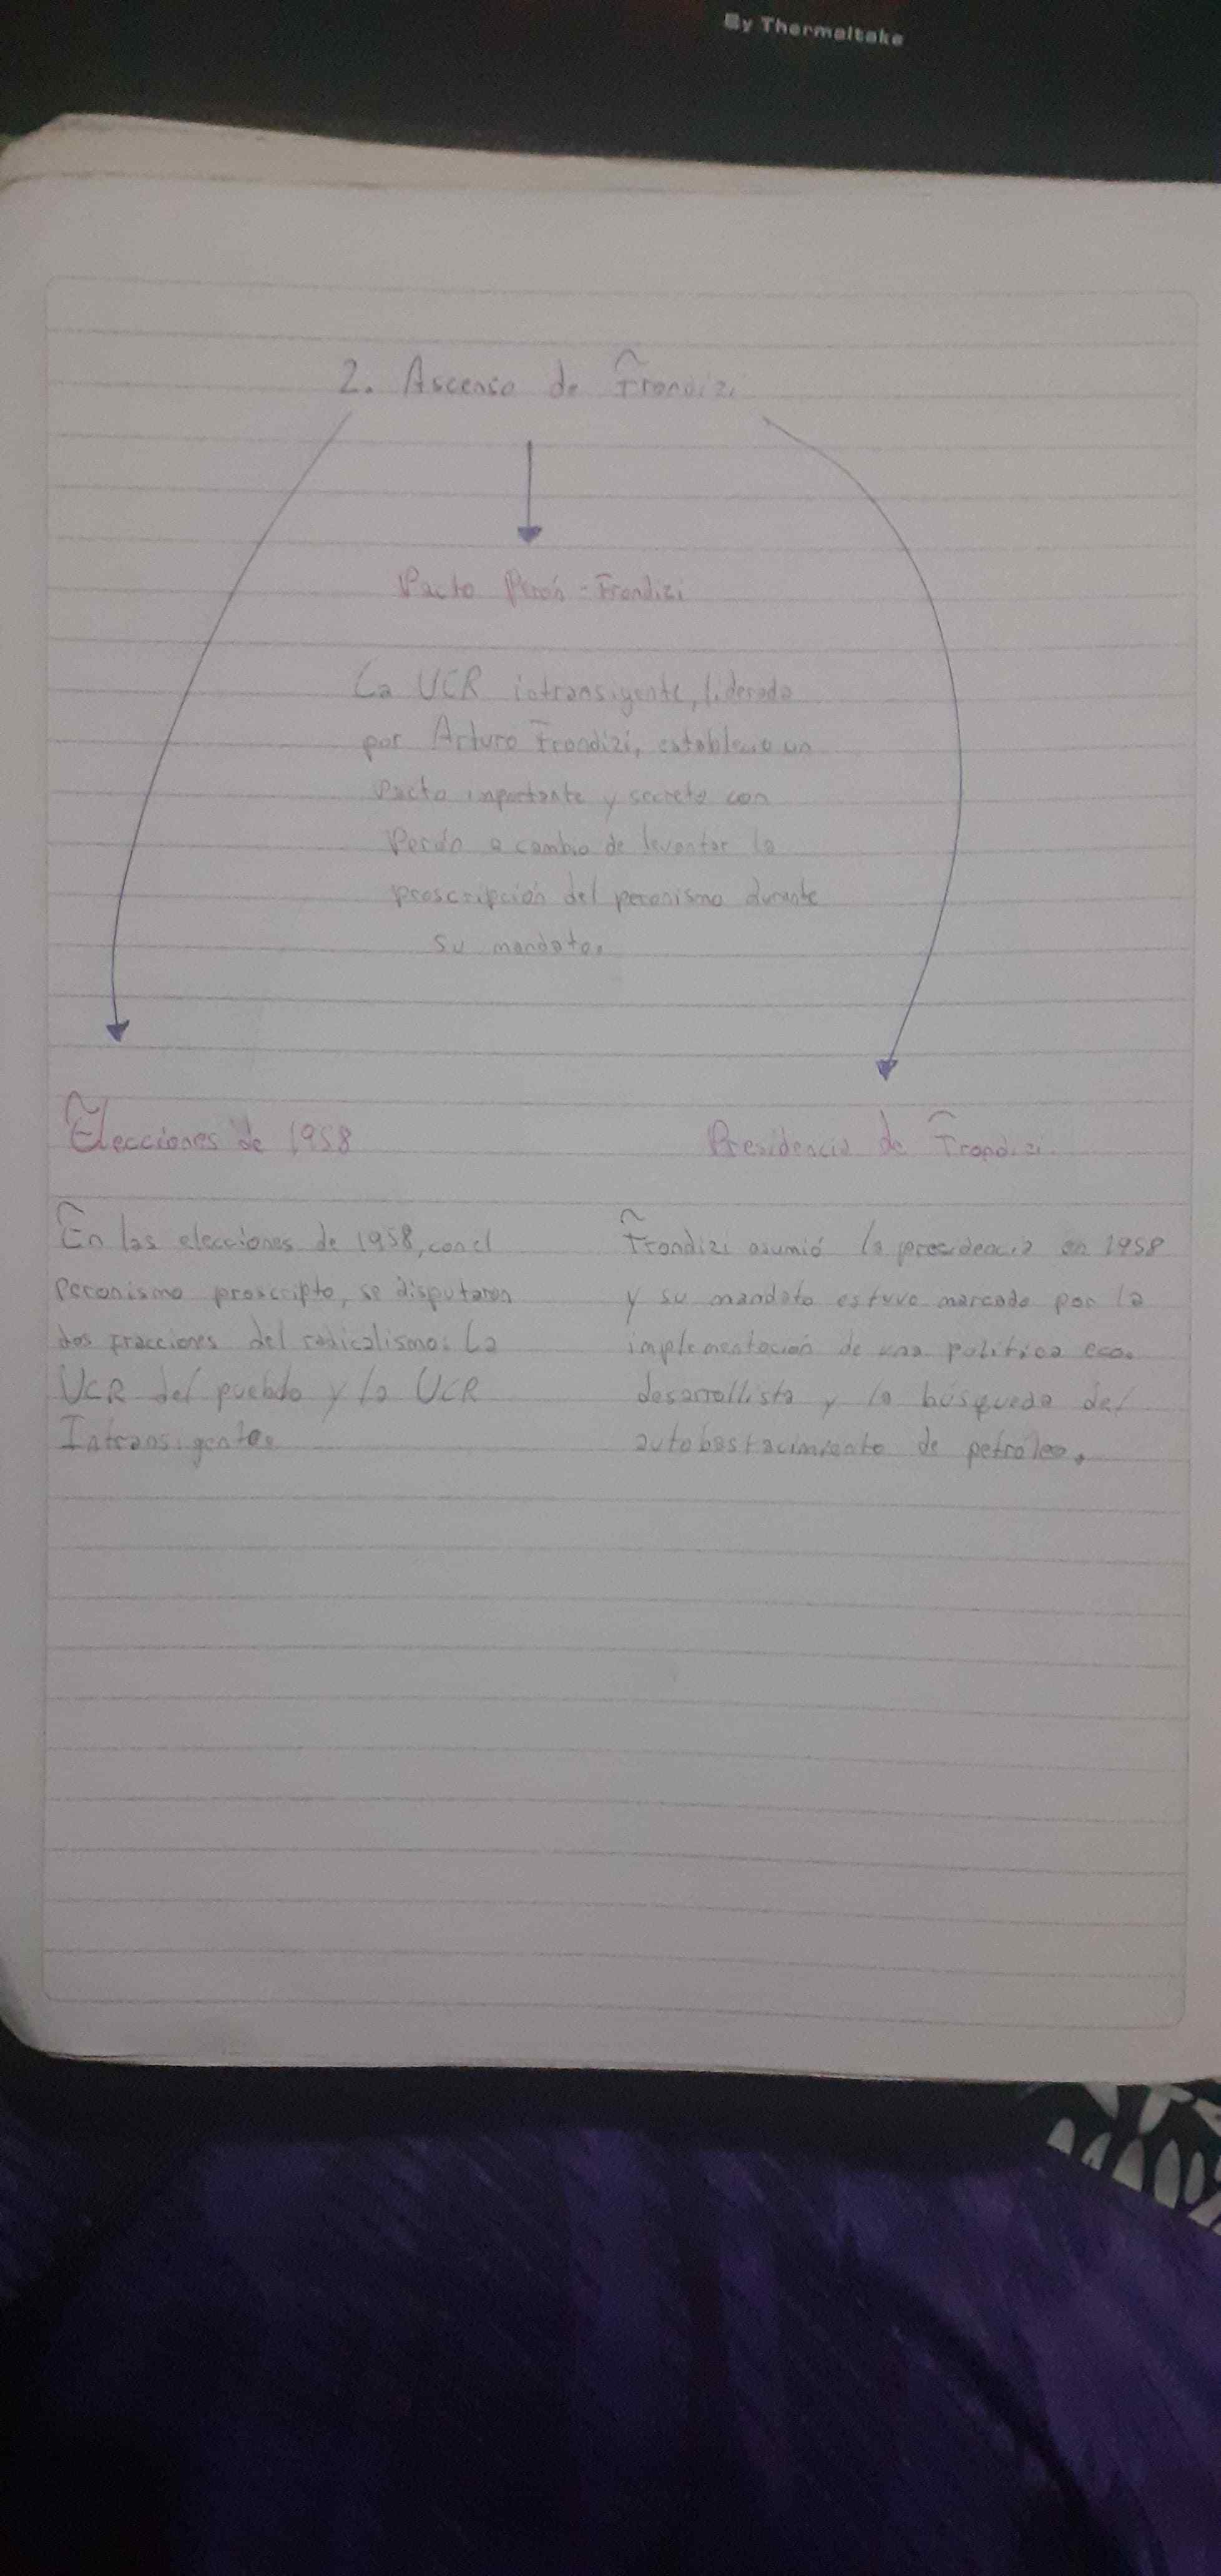 By Thermaltake
2. Ascenso de Frondizi
Pacto Perón - Frondizi
La UCR intransigente, liderada
por Arturo Frondizi, establecio un
Pacto importante y secreto con
Perón a cambio de levantar la
proscripción del peronismo durante
su mandato.
Elecciones de 1958
En las elecciones de 1958, con el
Peronismo proscripto, se disputaron
dos fracciones del radicalismo: La
UCR del pueblo y la UCR
Intransigente.
Presidencia de Frondizi
Frondizi asumió la presidencia en 1958
y su mandato estuvo marcado por la
implementación de una política eco.
desarrollista y la búsqueda del
autobastacimiento de petroleo.